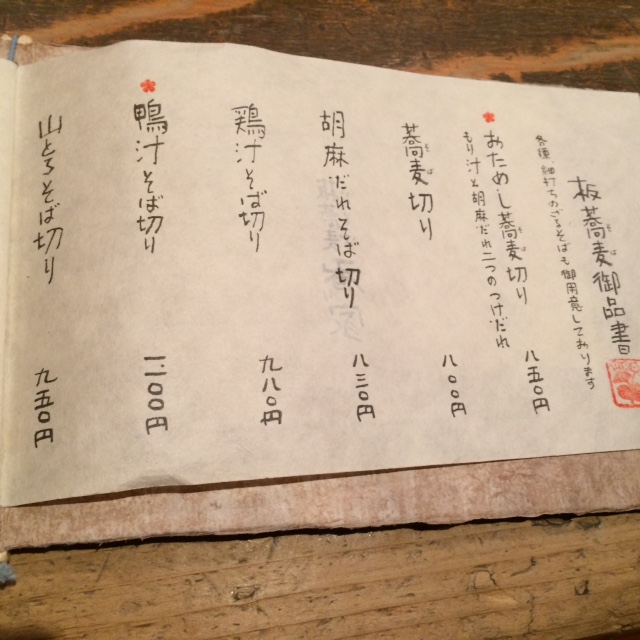 板蕎麦御品書
各種、細打ちのざるそばも御用意しております
おためし蕎麦切り 八五〇円
もり汁と胡麻だれ二つのつけだれ
蕎麦切り 八〇〇円
胡麻だれそば切り 八三〇円
鶏汁そば切り 九八〇円
鴨汁そば切り 一二〇〇円
山とろそば切り 九五〇円